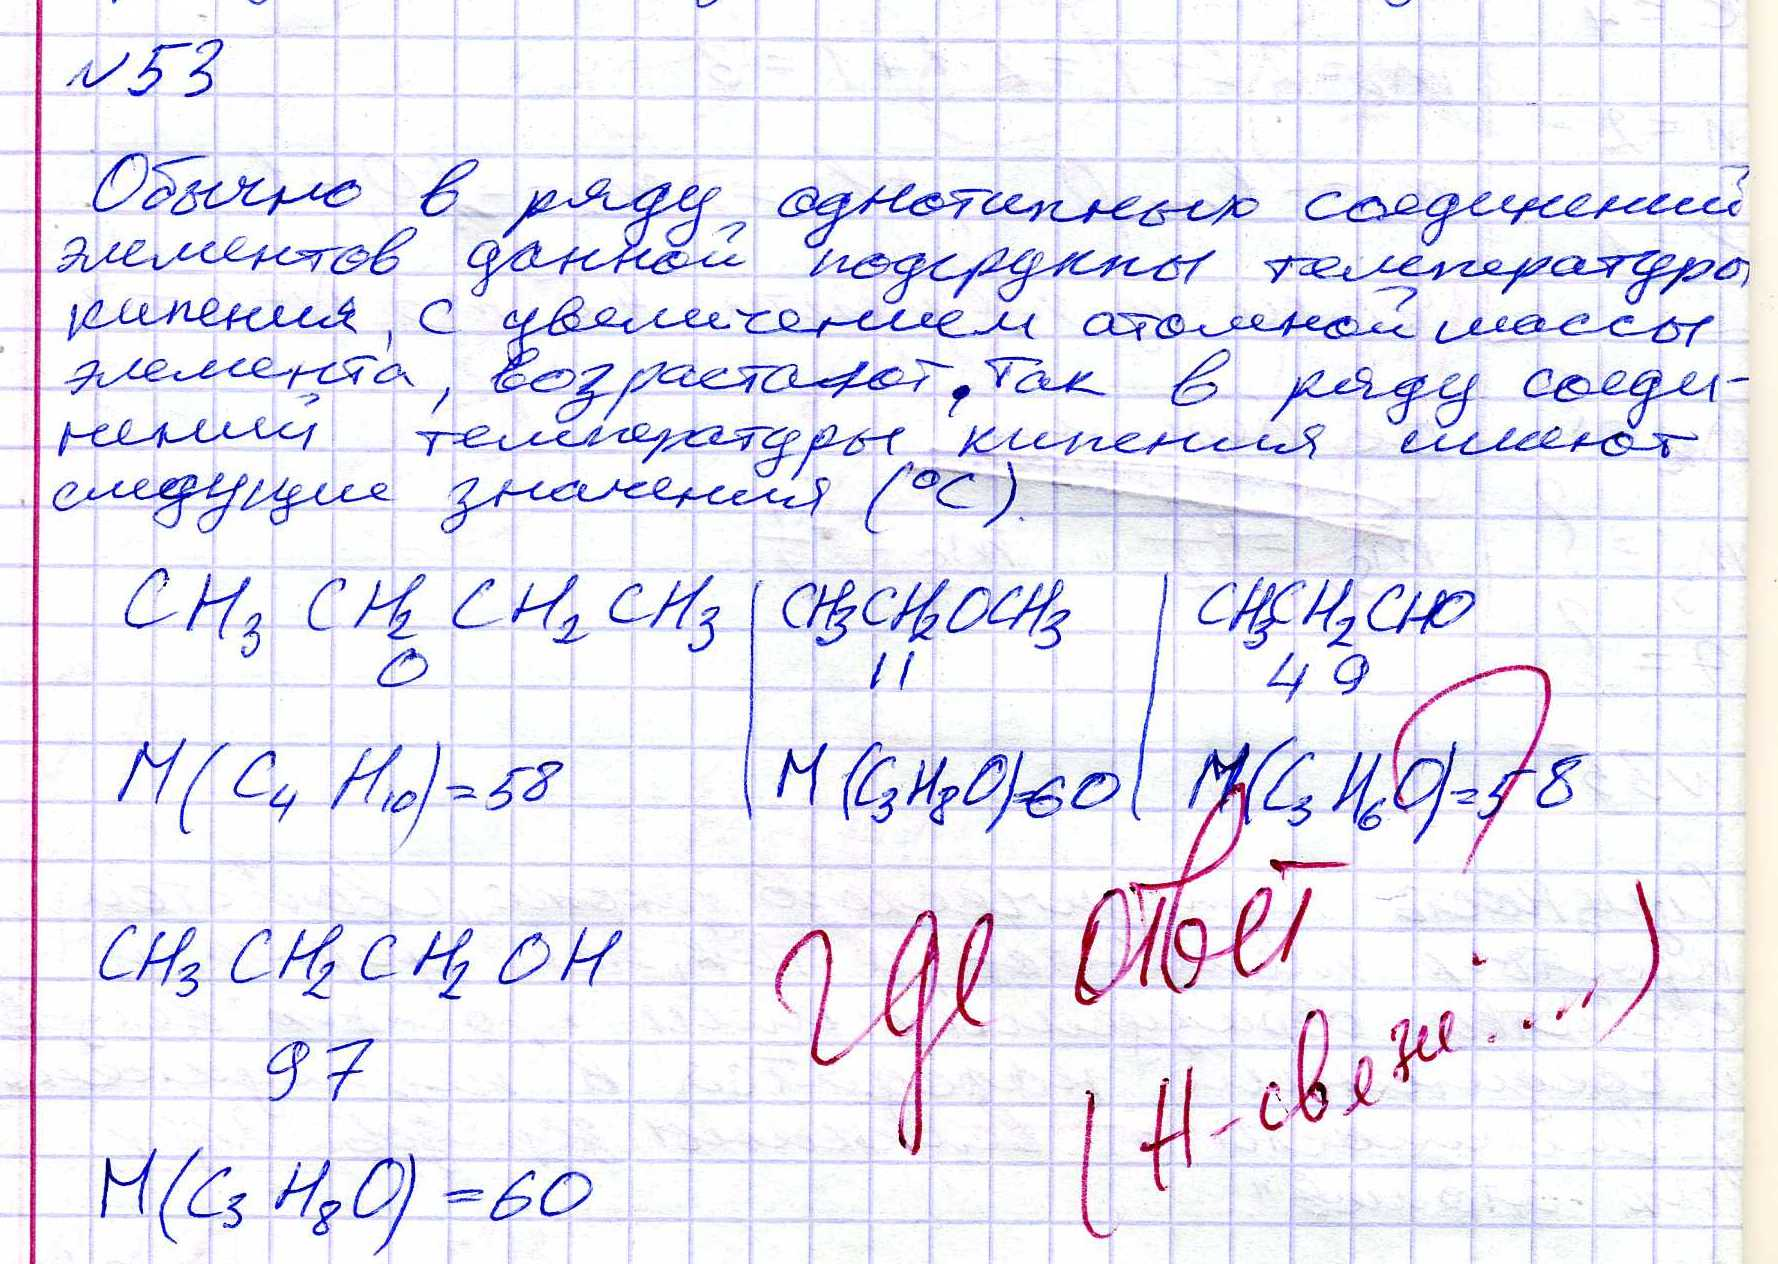 №53
Обычно в ряду однотипных соединений
элементов данной подгруппы температуры
кипения, с увеличением атомной массы
элемента, возрастают. Так в ряду соеди-
нений температуры кипения имеют
следущие значения (°C).
CH3 CH2 CH2 CH3 | CH3CH2OCH3 | CH3CH2CHO
0 11 49
M(C4H10)=58 M(C3H8O)=60 M(C3H6O)=58
CH3 CH2 CH2 OH
97
M(C3H8O)=60
где ответ?
(H-связи....)